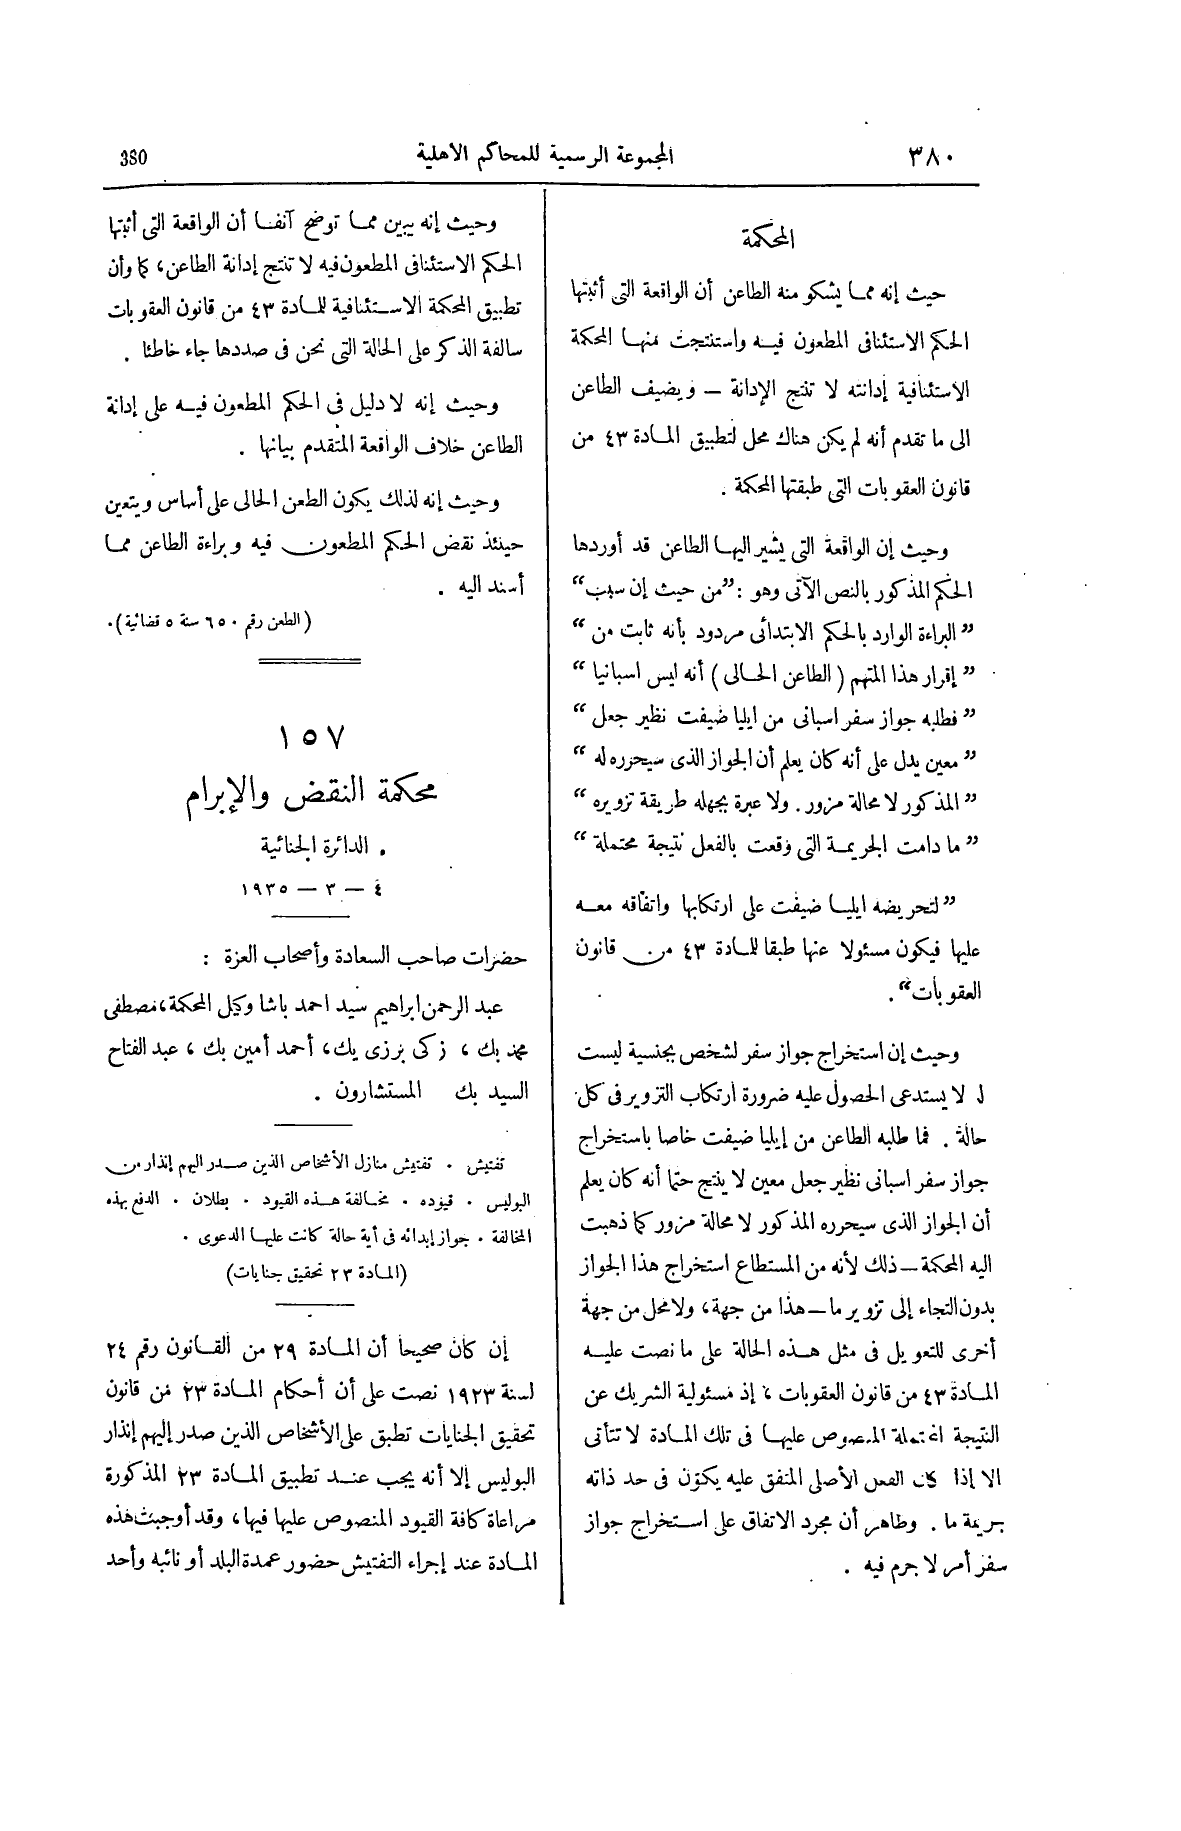 ٣٨٠ المجموعة الرسمية للمحاكم الاهلية 380
المحكمة
حيث إنه مما يشكو منه الطاعن أن الواقعة التى أثبتها
الحكم الاستئنافى المطعون فيه واستنتجت منها المحكمة
الاستئنافية إدانته لا تنتج الإدانة — ويضيف الطاعن
الى ما تقدم أنه لم يكن هناك محل لتطبيق المادة ٤٣ من
قانون العقوبات التى طبقتها المحكمة .
وحيث إن الواقعة التى يشير اليها الطاعن قد أوردها
الحكم المذكور بالنص الآتى وهو : ”من حيث إن سبب“
” البراءة الوارد بالحكم الابتدائى مردود بأنه ثابت من “
” إقرار هذا المتهم ( الطاعن الحالى ) أنه ليس اسبانيا “
” فطلبه جواز سفر اسبانى من ايليا ضيفت نظير جعل “
” معين يدل على أنه كان يعلم أن الجواز الذى سيحرره له “
” المذكور لا محالة مزور . ولا عبرة بجهله طريقة تزويره “
” ما دامت الجريمة التى وقعت بالفعل نتيجة محتملة “
” لتحريضه ايليا ضيفت على ارتكابها واتفاقه معه
عليها فيكون مسئولا عنها طبقا للمادة ٤٣ من قانون
العقوبات“ .
وحيث إن استخراج جواز سفر لشخص بجنسية ليست
له لا يستدعى الحصول عليه ضرورة ارتكاب التزوير فى كل
حالة . فما طلبه الطاعن من إيليا ضيفت خاصا باستخراج
جواز سفر اسبانى نظير جعل معين لا ينتج حتما أنه كان يعلم
أن الجواز الذى سيحرره المذكور لا محالة مزور كما ذهبت
اليه المحكمة — ذلك لأنه من المستطاع استخراج هذا الجواز
بدون التجاء إلى تزوير ما — هذا من جهة، ولا محل من جهة
أخرى للتعويل فى مثل هذه الحالة على ما نصت عليه
المادة ٤٣ من قانون العقوبات ، إذ مسئولية الشريك عن
النتيجة المحتملة المنصوص عليها فى تلك المادة لا تتأتى
الا إذا كان الفعل الأصلى المتفق عليه يكوّن فى حد ذاته
جريمة ما . وظاهر أن مجرد الاتفاق على استخراج جواز
سفر أمر لا جرم فيه .
وحيث إنه يبين مما توضح آنفا أن الواقعة التى أثبتها
الحكم الاستئنافى المطعون فيه لا تنتج إدانة الطاعن، كما وأن
تطبيق المحكمة الاستئنافية للمادة ٤٣ من قانون العقوبات
سالفة الذكر على الحالة التى نحن فى صددها جاء خاطئا .
وحيث إنه لا دليل فى الحكم المطعون فيه على إدانة
الطاعن خلاف الواقعة المتقدم بيانها .
وحيث إنه لذلك يكون الطعن الحالى على أساس ويتعين
حينئذ نقض الحكم المطعون فيه وبراءة الطاعن مما
أسند اليه .
(الطعن رقم ٦٥٠ سنة ٥ قضائية) .
١٥٧
محكمة النقض والإبرام
الدائرة الجنائية .
٤ — ٣ — ١٩٣٥
حضرات صاحب السعادة وأصحاب العزة :
عبد الرحمن ابراهيم سيد احمد باشا وكيل المحكمة، مصطفى
محمد بك ، زكى برزى بك، أحمد أمين بك ، عبد الفتاح
السيد بك المستشارون .
تفتيش . تفتيش منازل الأشخاص الذين صدر اليهم إنذار من
البوليس . قيوده . مخالفة هذه القيود . بطلان . الدفع بهذه
المخالفة . جواز إبدائه فى أية حالة كانت عليها الدعوى .
(المادة ٢٣ تحقيق جنايات)
إن كان صحيحا أن المادة ٢٩ من القانون رقم ٢٤
لسنة ١٩٢٣ نصت على أن أحكام المادة ٢٣ من قانون
تحقيق الجنايات تطبق على الأشخاص الذين صدر إليهم إنذار
البوليس إلا أنه يجب عند تطبيق المادة ٢٣ المذكورة
مراعاة كافة القيود المنصوص عليها فيها، وقد أوجبت هذه
المادة عند إجراء التفتيش حضور عمدة البلد أو نائبه وأحد